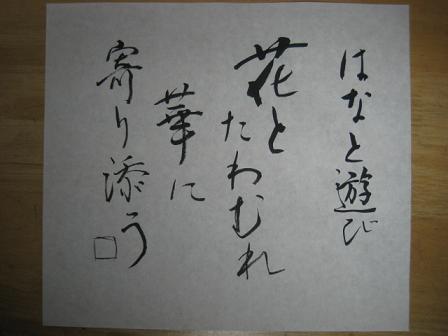 はなと遊び
花と
たわむれ
華に
寄り添う